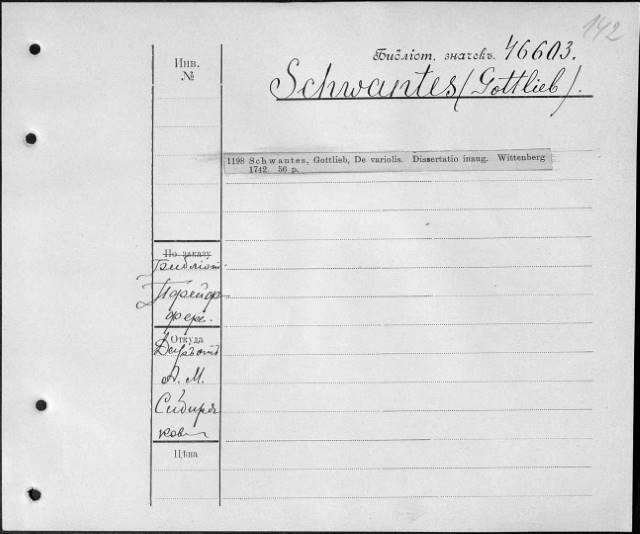 142
Библіот. значекъ. 46603.
Schwantes (Gottlieb).
Инв.
№
1198 Schwantes, Gottlieb, De variolis. Dissertatio inaug. Wittenberg
1742. 56 p.
По заказу
Библіот.
Пфейф
фера.
Откуда
А. М.
Сибиря
ковъ
Цѣна